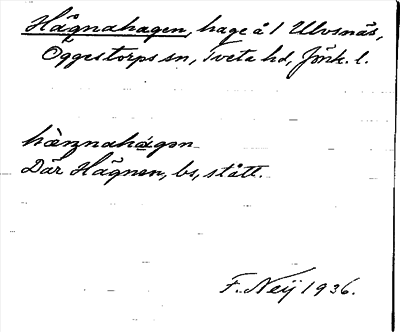 Hägnahagen, hage å 1 Ulvsnäs,
Öggestorps sn, Tveta hd, Jönk. l.
hæŋnahagən
Där Hägnen, bs, stått.
F. Neij 1936.